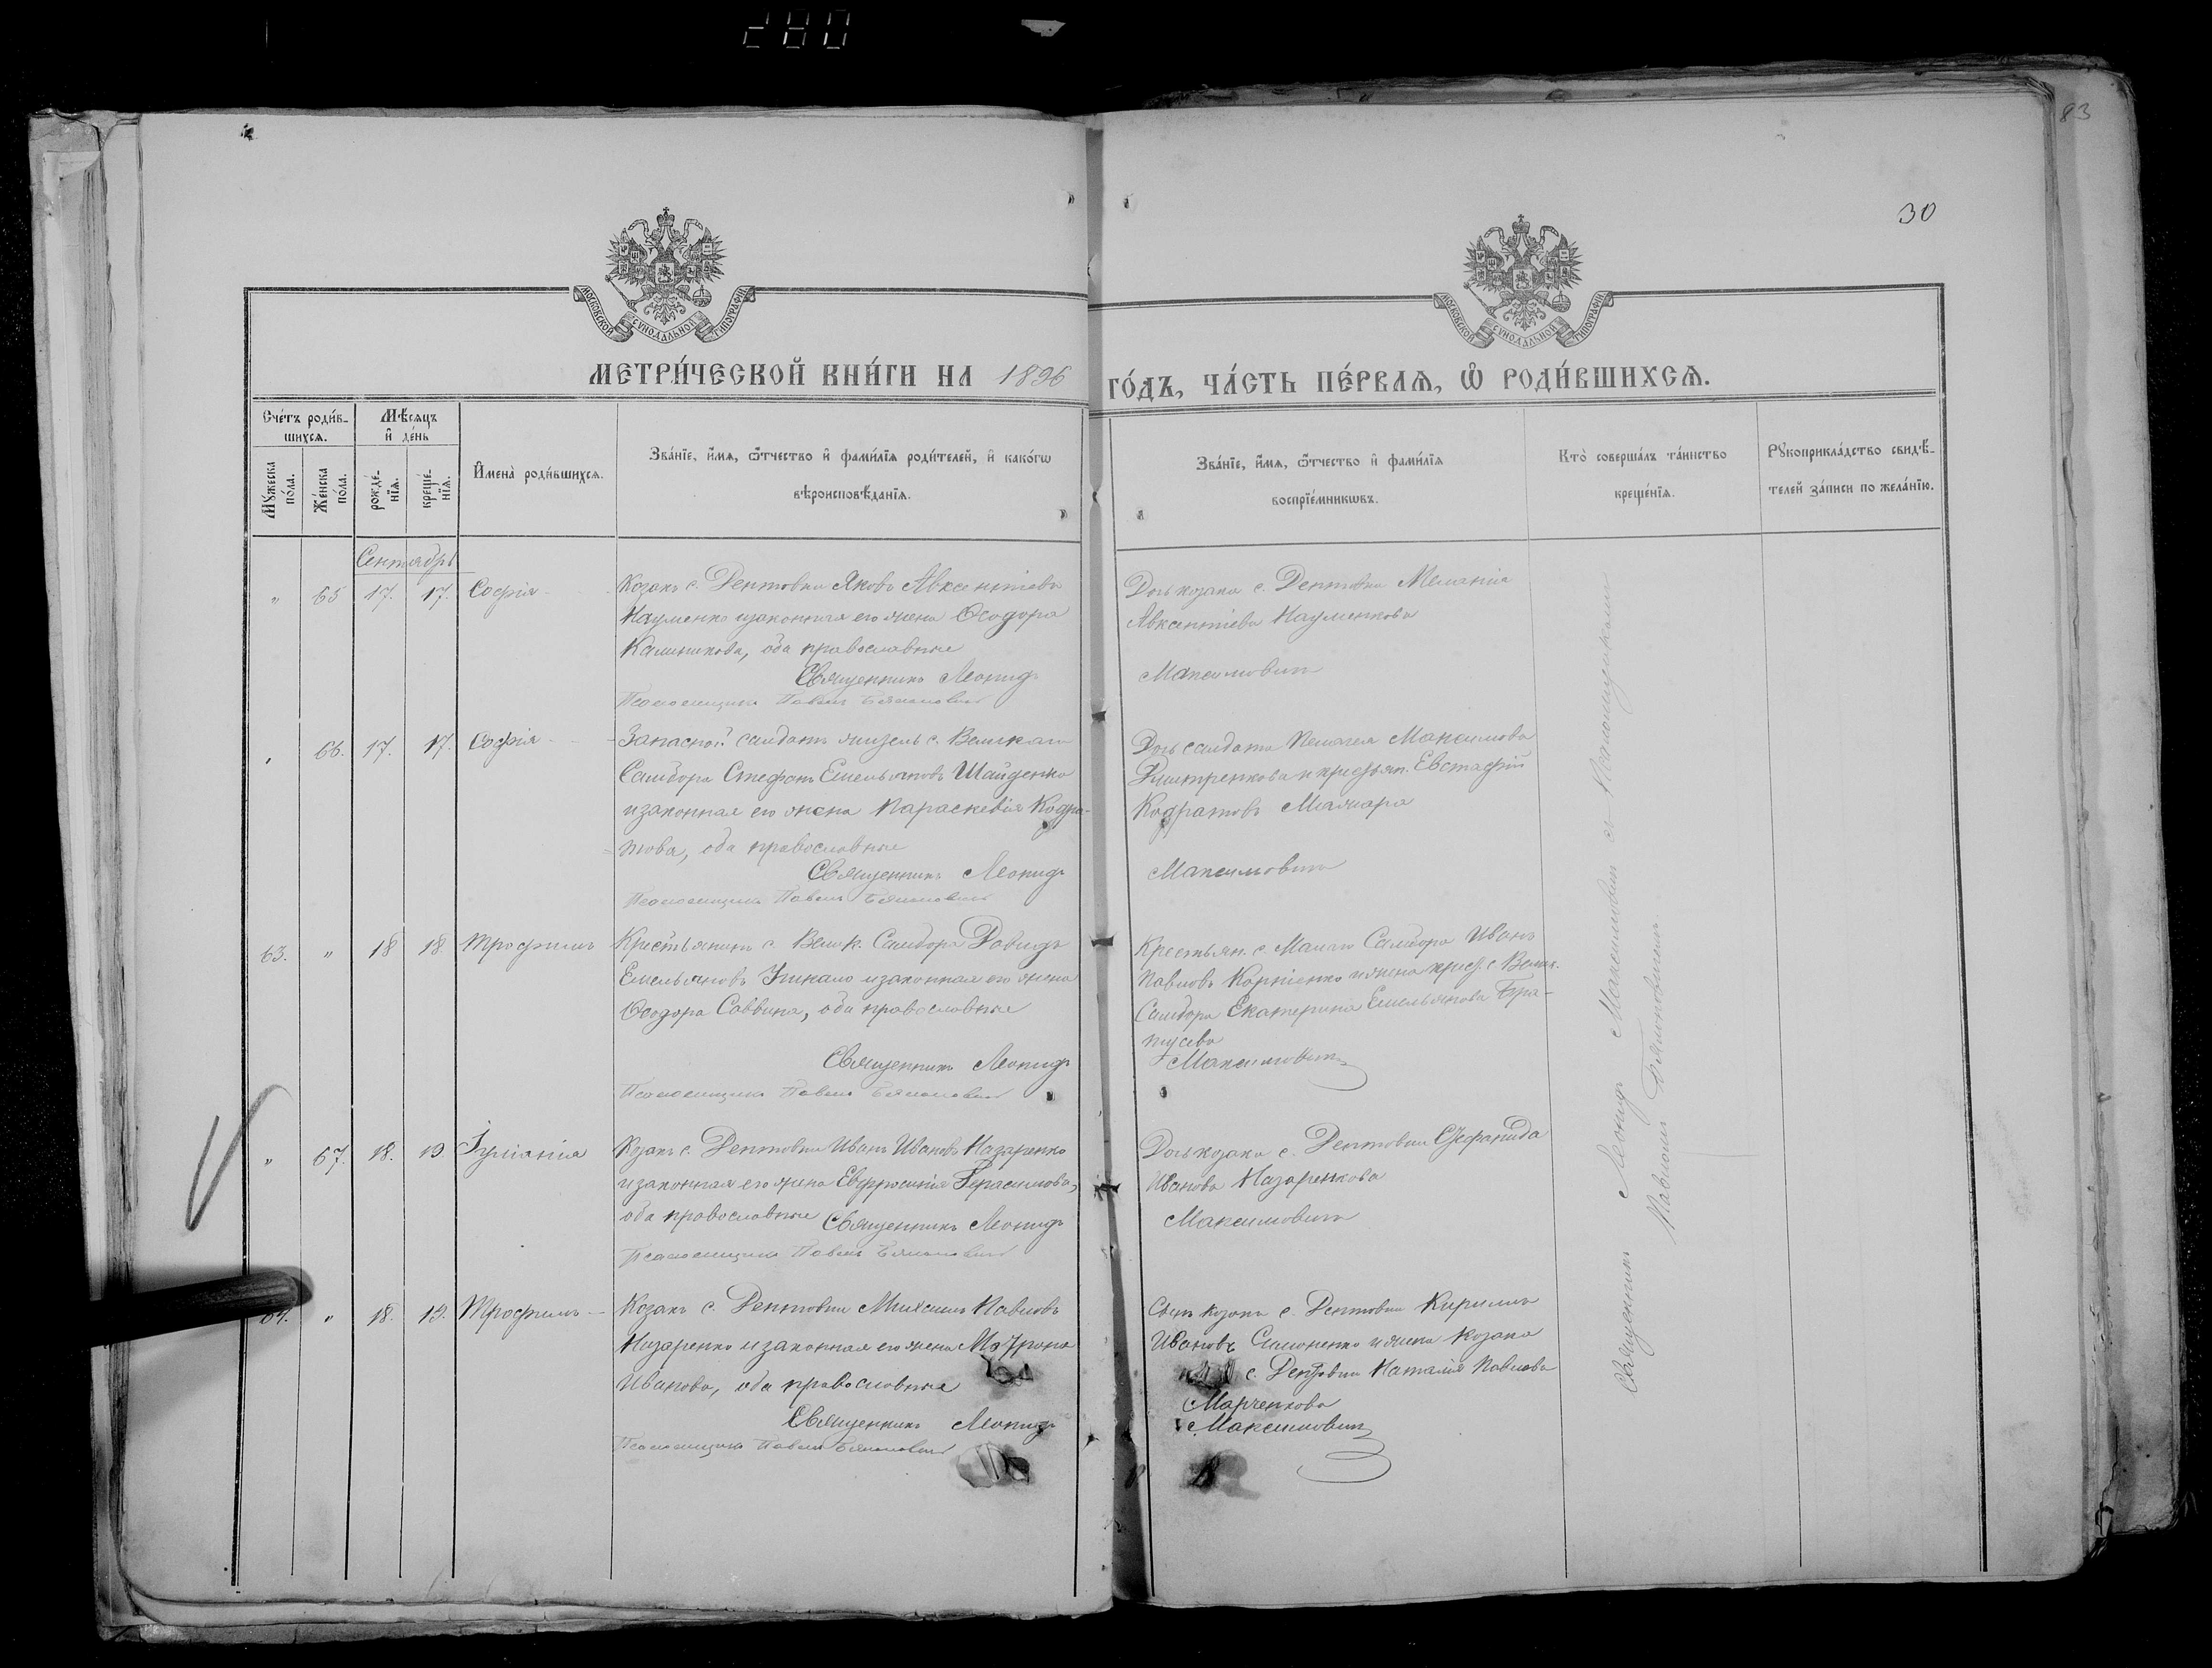 280
83
30
МОСКОВСКОЙ СѴНОДАЛЬНОЙ ТИПОГРАФІИ
МОСКОВСКОЙ СѴНОДАЛЬНОЙ ТИПОГРАФІИ
МЕТРИ́ЧЕСКОЙ КНИ́ГИ НА 1896 ГО́ДЪ, ЧА́СТЬ ПЕ́РВАѦ, Ѡ҆ РОДИ́ВШИХСѦ.
Сче́тъ роди́в-
шихсѧ.
Мꙋ́жеска
по́ла.
Же́нска
по́ла.
Мѣ́сѧцъ
и҆ де́нь
рожде́-
нїѧ.
креще́-
нїѧ.
И҆мена̀ роди́вшихсѧ.
Зва́нїе, и҆́мѧ, ѻ҆́тчество и҆ фами́лїѧ роди́телей, и҆ како́гѡ
вѣроисповѣ́данїѧ.
Зва́нїе, и҆́мѧ, ѻ҆́тчество и҆ фами́лїѧ
воспрїе́мникѡвъ.
Кто̀ соверша́лъ та́инство
креще́нїѧ.
Рꙋкоприкла́дство свидѣ́-
телей за́писи по жела́нїю.
Сентябрь
" 65 17. 17. Софія
Козакъ с. Дептовки Яковъ Авксентіевъ
Науменко и законная его жена Ѳеодора
Калиникова, оба православные
Священникъ Леонидъ
Псаломщикъ Павелъ
Дочь козака с. Дептовки Меланія
Авксентіева Науменкова
Максимовичъ
" 66. 17. 17. Софія
Запасной солдатъ житель с. Великаго
Самбора Стефанъ Емельяновъ Шайденко
и законная его жена Параскевія Кодра-
това, оба православные
Священникъ Леонидъ
Псаломщикъ Павелъ
Дочь солдата Пелагея Максимова
Дмитренкова и крестьян. Евстафій
Кодратовъ
Максимовичъ
63. " 18 18. Трофимъ
Крестьянинъ с. Велик. Самбора Давидъ
Емельяновъ и законная его жена
Ѳеодора Саввина, оба православные
Священникъ Леонидъ
Псаломщикъ Павелъ
Крестьян. с. Малаго Самбора Иванъ
Павловъ Корніенко и жена крест. с. Велик.
Самбора Екатерина Емельянова
Максимовичъ
" 67. 18. 19. Іуліанія
Козакъ с. Дептовки Иванъ Ивановъ Назаренко
и законная его жена Евфросинія Герасимова,
оба православные Священникъ Леонидъ
Псаломщикъ Павелъ
Дочь козака с. Дептовки Стефанида
Иванова Назаренкова
Максимовичъ
64. " 18. 19. Трофимъ
Козакъ с. Дептовки Михаилъ Павловъ
Назаренко и законная его жена Матрона
Иванова, оба православные
Священникъ Леонидъ
Псаломщикъ Павелъ
Сынъ козака с. Дептовки Кириллъ
Ивановъ Симоненко и жена козака
с. Дептовки Наталія Павлова
Марченкова
Максимовичъ
Священникъ Леонидъ Максимовичъ съ Псаломщикомъ
Павломъ